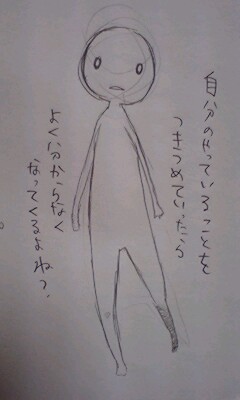 自分のやっていることを
つきつめていったら
よく分からなく
なってくるよね?